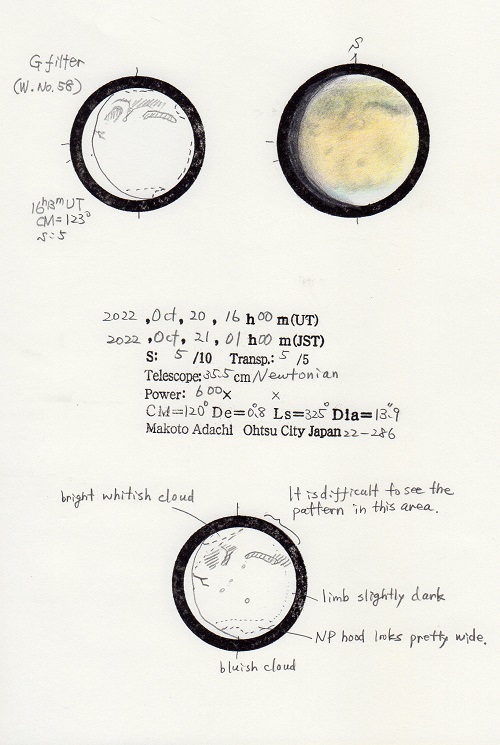 G filter
(W. No. 58)
S
16h13m UT
CM=123°
S=5
2022 , Oct, 20 , 16 h 00 m(UT)
2022 , Oct, 21 , 01 h 00 m(JST)
S: 5 /10 Transp.: 5 /5
Telescope: 35.5 cm/Newtonian
Power: 600× ×
CM=120° De=0.°8 Ls=325° Dia=13."9
Makoto Adachi Ohtsu City Japan 22-286
bright whitish cloud
It is difficult to see the
pattern in this area.
limb slightly dark
NP hood looks pretty wide.
bluish cloud